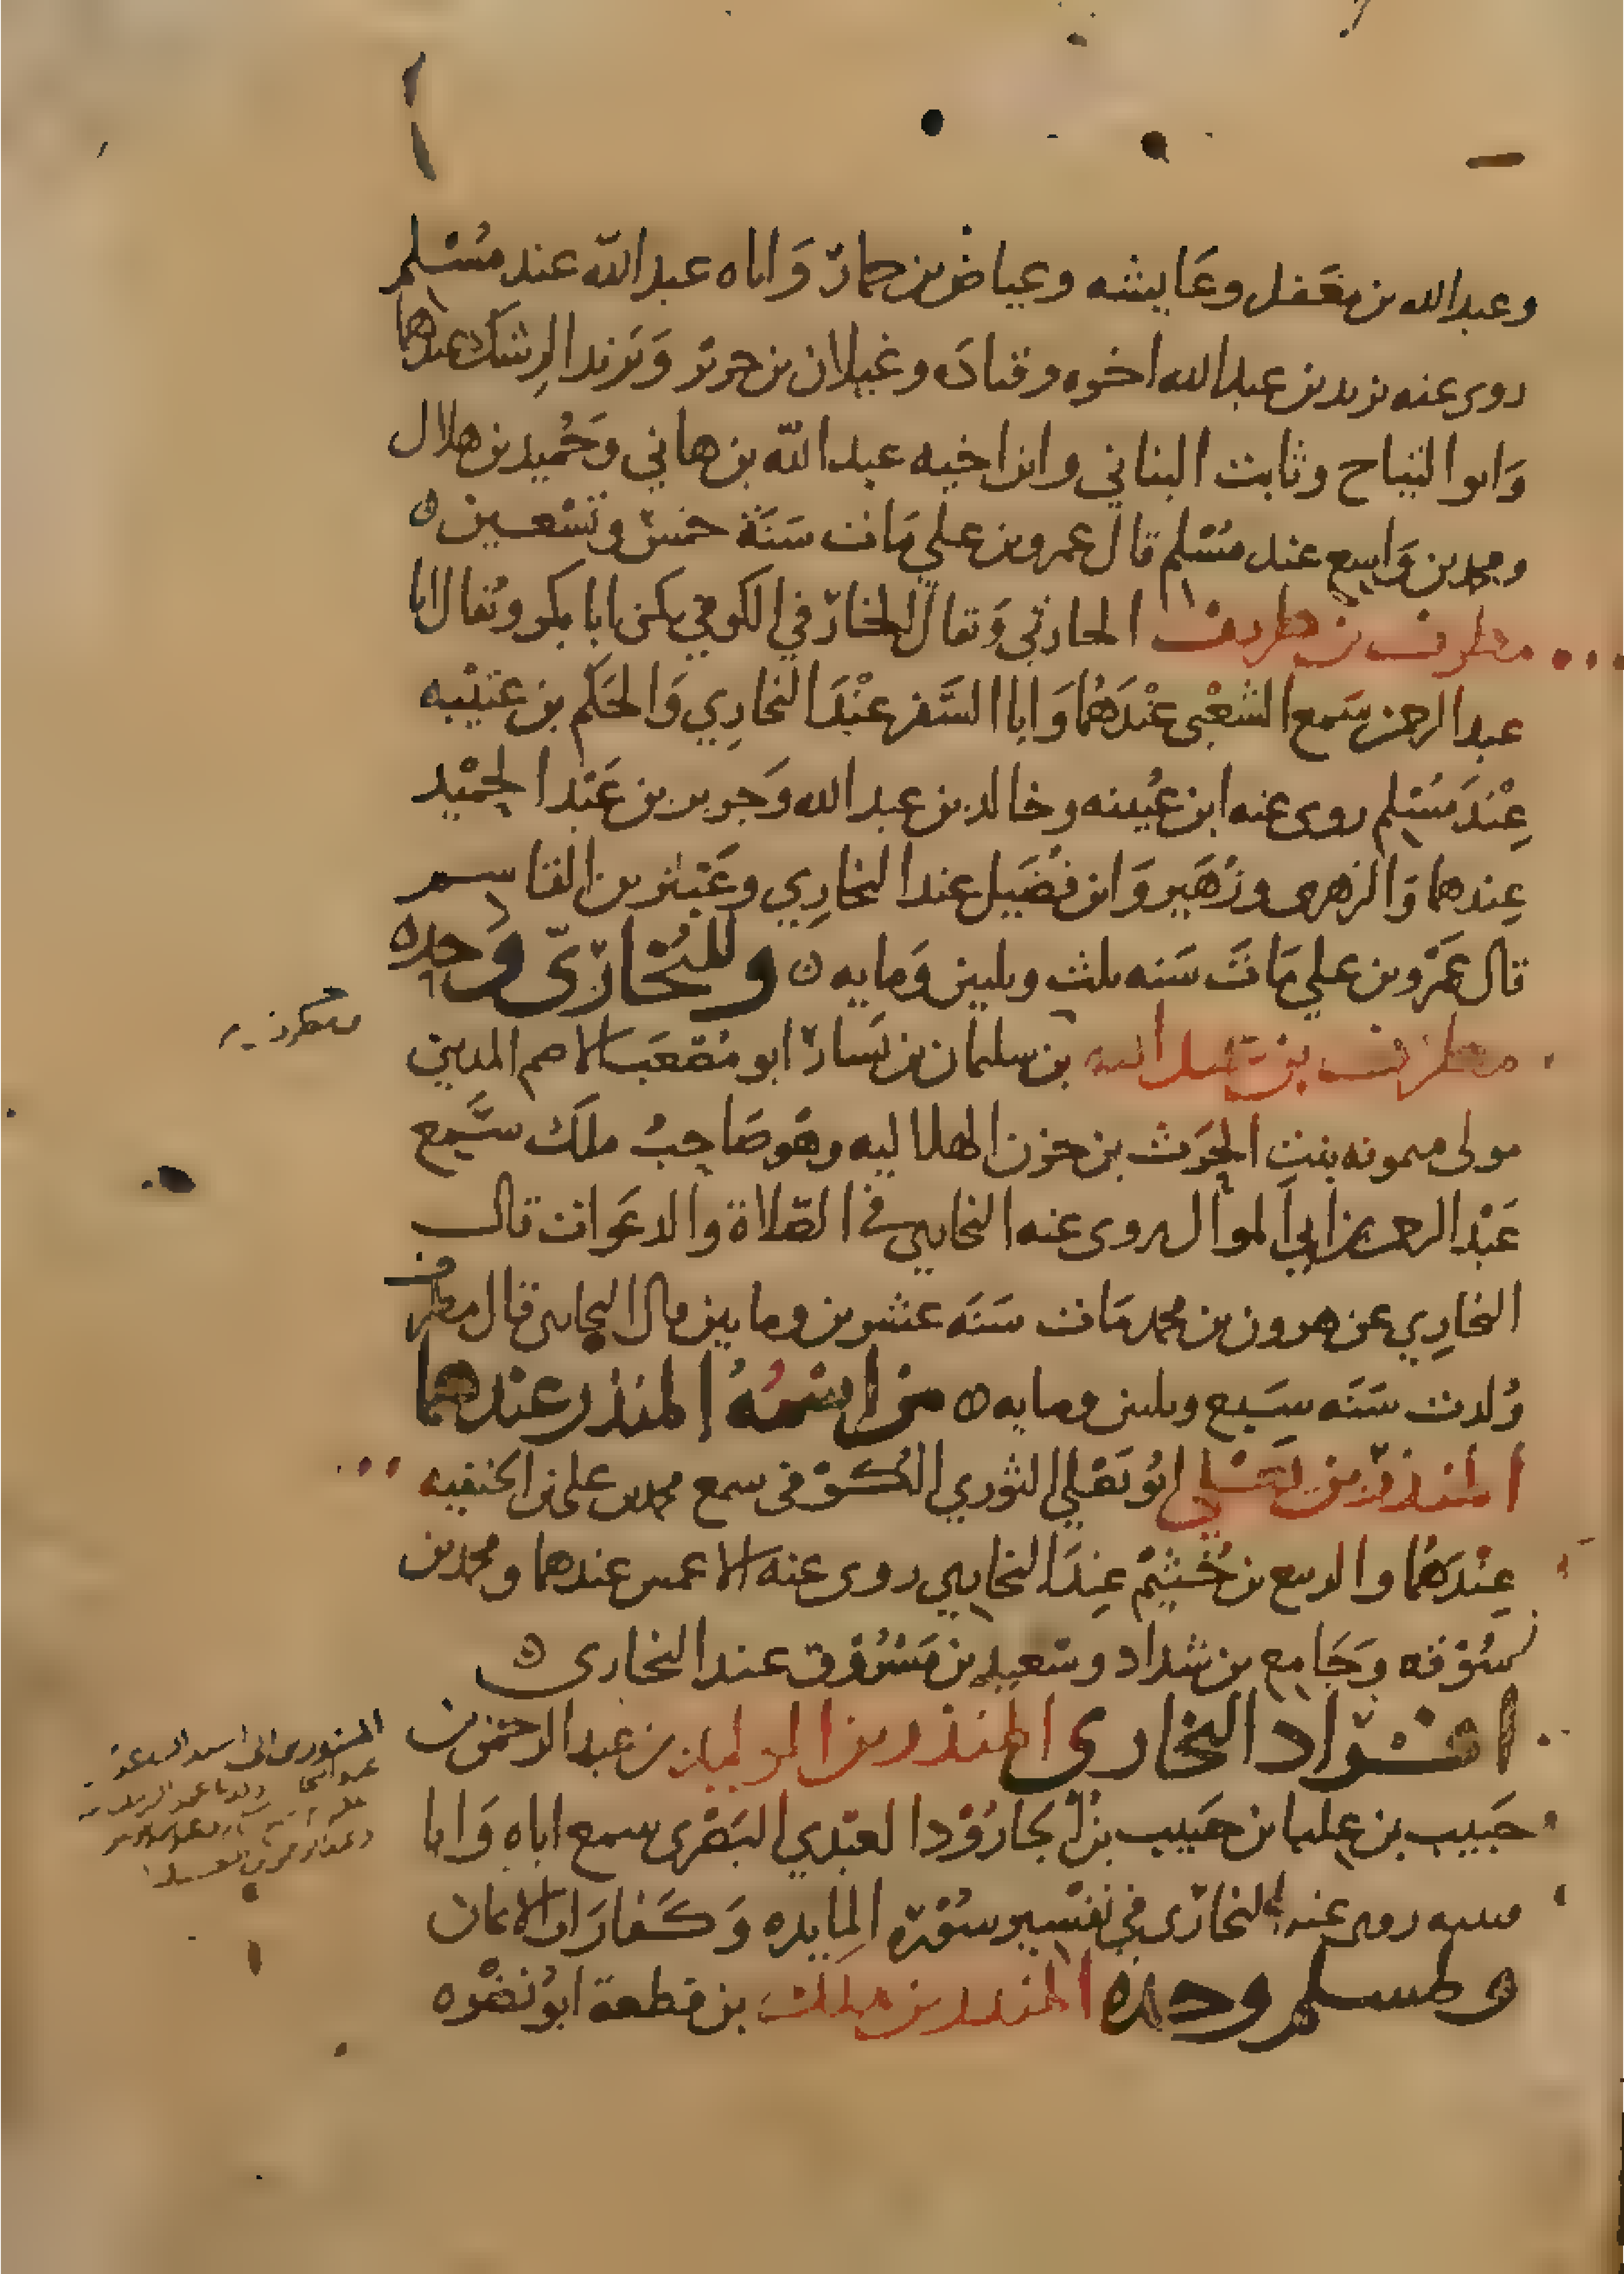 وعبد الله بن مغفل وعايشه وعياض بن حمار واباه عبد الله عند مسلم
روى عنه يزيد بن عبد الله اخوه وقتاده وغيلان بن جرير ويزيد الرشك عندهما
وابو التياح وثابت البناني وابن اخيه عبد الله بن هاني وحميد بن هلال
ومحمد بن واسع عند مسلم قال عمرو بن علي مات سنة خمس وتسعين
مطرف بن طريف الحارثي ويقال الخارفي الكوفي يكنى ابا بكر ويقال ابا
عبد الرحمن سمع الشعبي عندهما وابا السفر عند البخاري والحكم بن عتيبه
عند مسلم روى عنه ابن عيينه وخالد بن عبد الله وجرير بن عبد الحميد
عندهما والزهرى وزهير وابن فضيل عند البخاري وعبثر بن القاسم
قال عمرو بن علي مات سنه ثلث وثلثين ومايه وللبخاري وحده
مطرف بن عبد الله بن سليمان بن يسار ابو مصعب الاصم المديني
مولى ميمونه بنت الحرث بن حزن الهلاليه وهو صاحب ملك سمع
عبد الرحمن بن ابي الموال روى عنه البخاري في الصلاة والدعوات قال
البخاري عن هرون بن محمد مات سنه عشرين ومايتين قال البخاري قال مطرف
ولدت سنه سبع وثلثين ومايه من اسمه المنذر عندهما
المنذر بن يعلي ابو يعلي الثوري الكوفي سمع محمد بن على بن الحنفيه
عندهما والربيع بن خثيم عند البخاري روى عنه الاعمش عندهما ومحمد بن
سوقه وجامع بن شداد وسعيد بن مسروق عند البخارى
افراد البخارى المنذر بن الوليد بن عبد الرحمن بن
حبيب بن عليا بن حبيب بن الجارود العبدي البصرى سمع اباه وابا
قتيبه روى عنه البخارى في تفسير سورة المايده وكفارات الايمان
ولمسلم وحده المنذر بن ملك بن قطعة ابو نضره